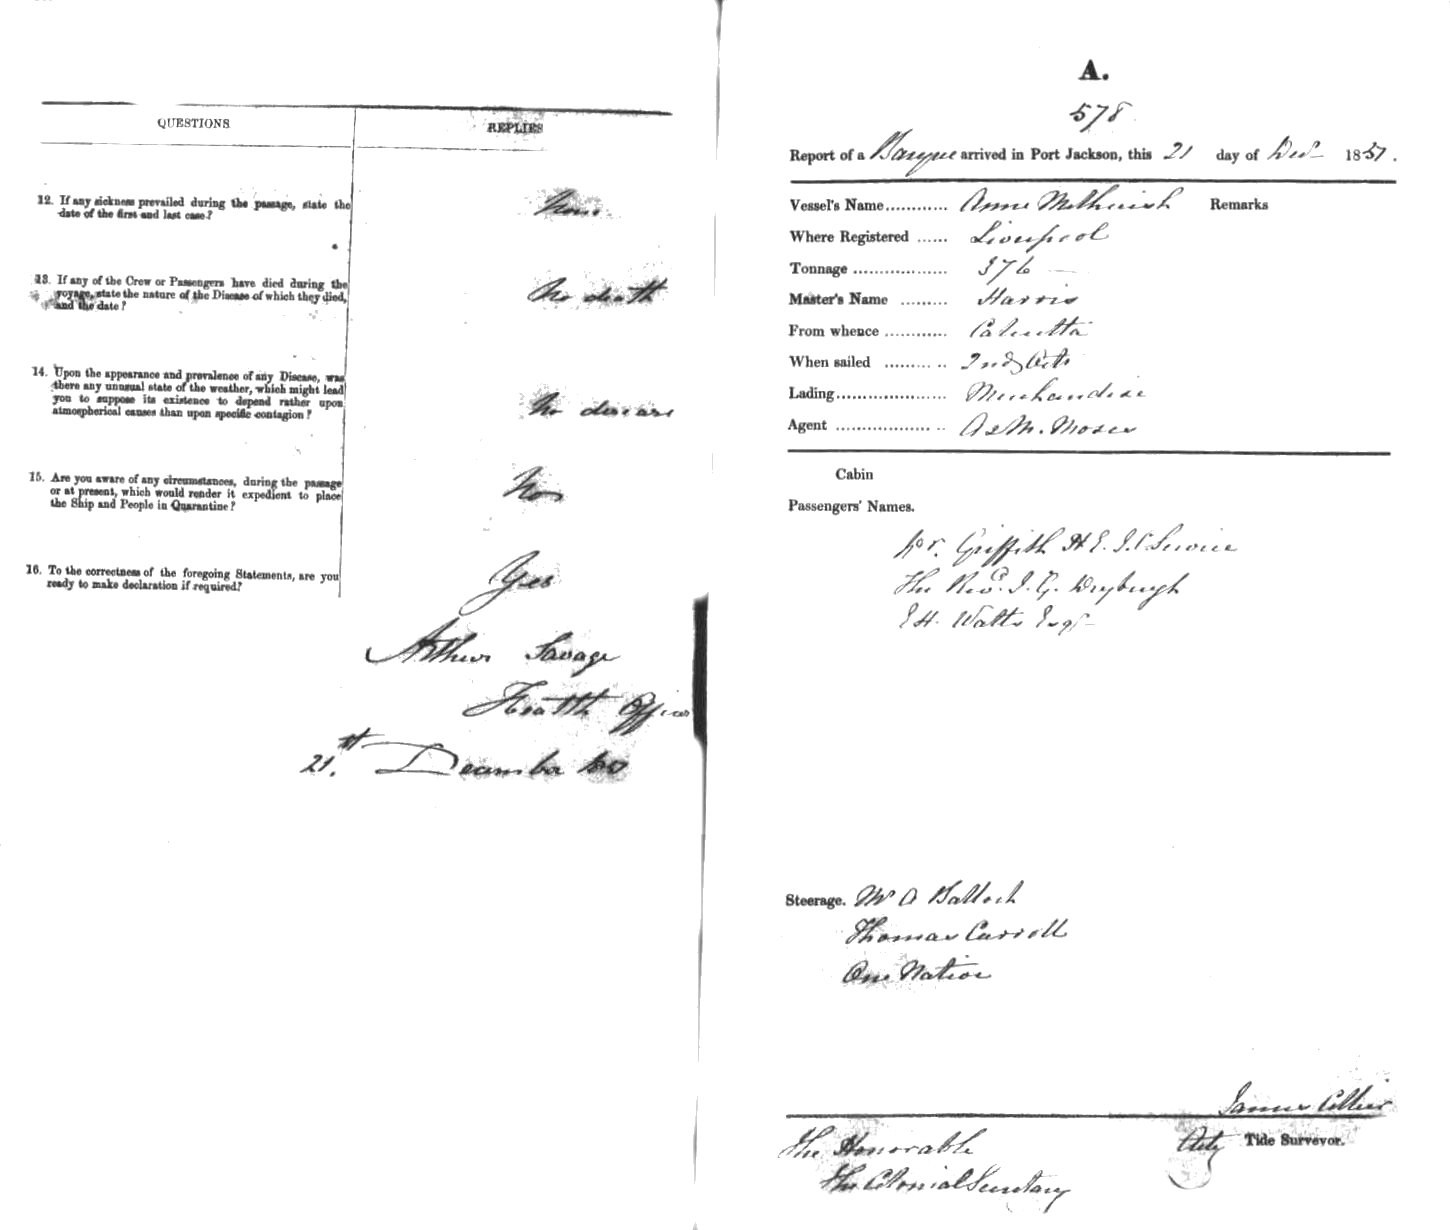 QUESTIONS
REPLIES
12. If any sickness prevailed during the passage, state the
date of the first and last case?
None
13. If any of the Crew or Passengers have died during the
voyage, state the nature of the Disease of which they died,
and the date?
No death
14. Upon the appearance and prevalence of any Disease, was
there any unusual state of the weather, which might lead
you to suppose its existence to depend rather upon
atmospherical causes than upon specific contagion?
No disease
15. Are you aware of any circumstances, during the passage
or at present, which would render it expedient to place
the Ship and People in Quarantine?
16. To the correctness of the foregoing Statements, are you
ready to make declaration if required?
Yes
Arthur Savage
Health Officer
21st December
A.
578
Report of a Barque arrived in Port Jackson, this 21 day of Decr 1851.
Vessel's Name............ Anne Remarks
Where Registered ...... Liverpool
Tonnage .................. 376
Master's Name ......... Harris
From whence ............ Calcutta
When sailed ......... .. 2nd Octr
Lading..................... Merchandise
Agent .................. .. A & M. Moses
Cabin
Passengers' Names.
Mr. Griffith H E. I. C Service
The Revd. I. G. Dryburgh
E H. Watts Esqr
Steerage. Mr D Balloch
Thomas Carroll
One Native
James Collier
Actg Tide Surveyor.
The Honorable
The Colonial Secretary